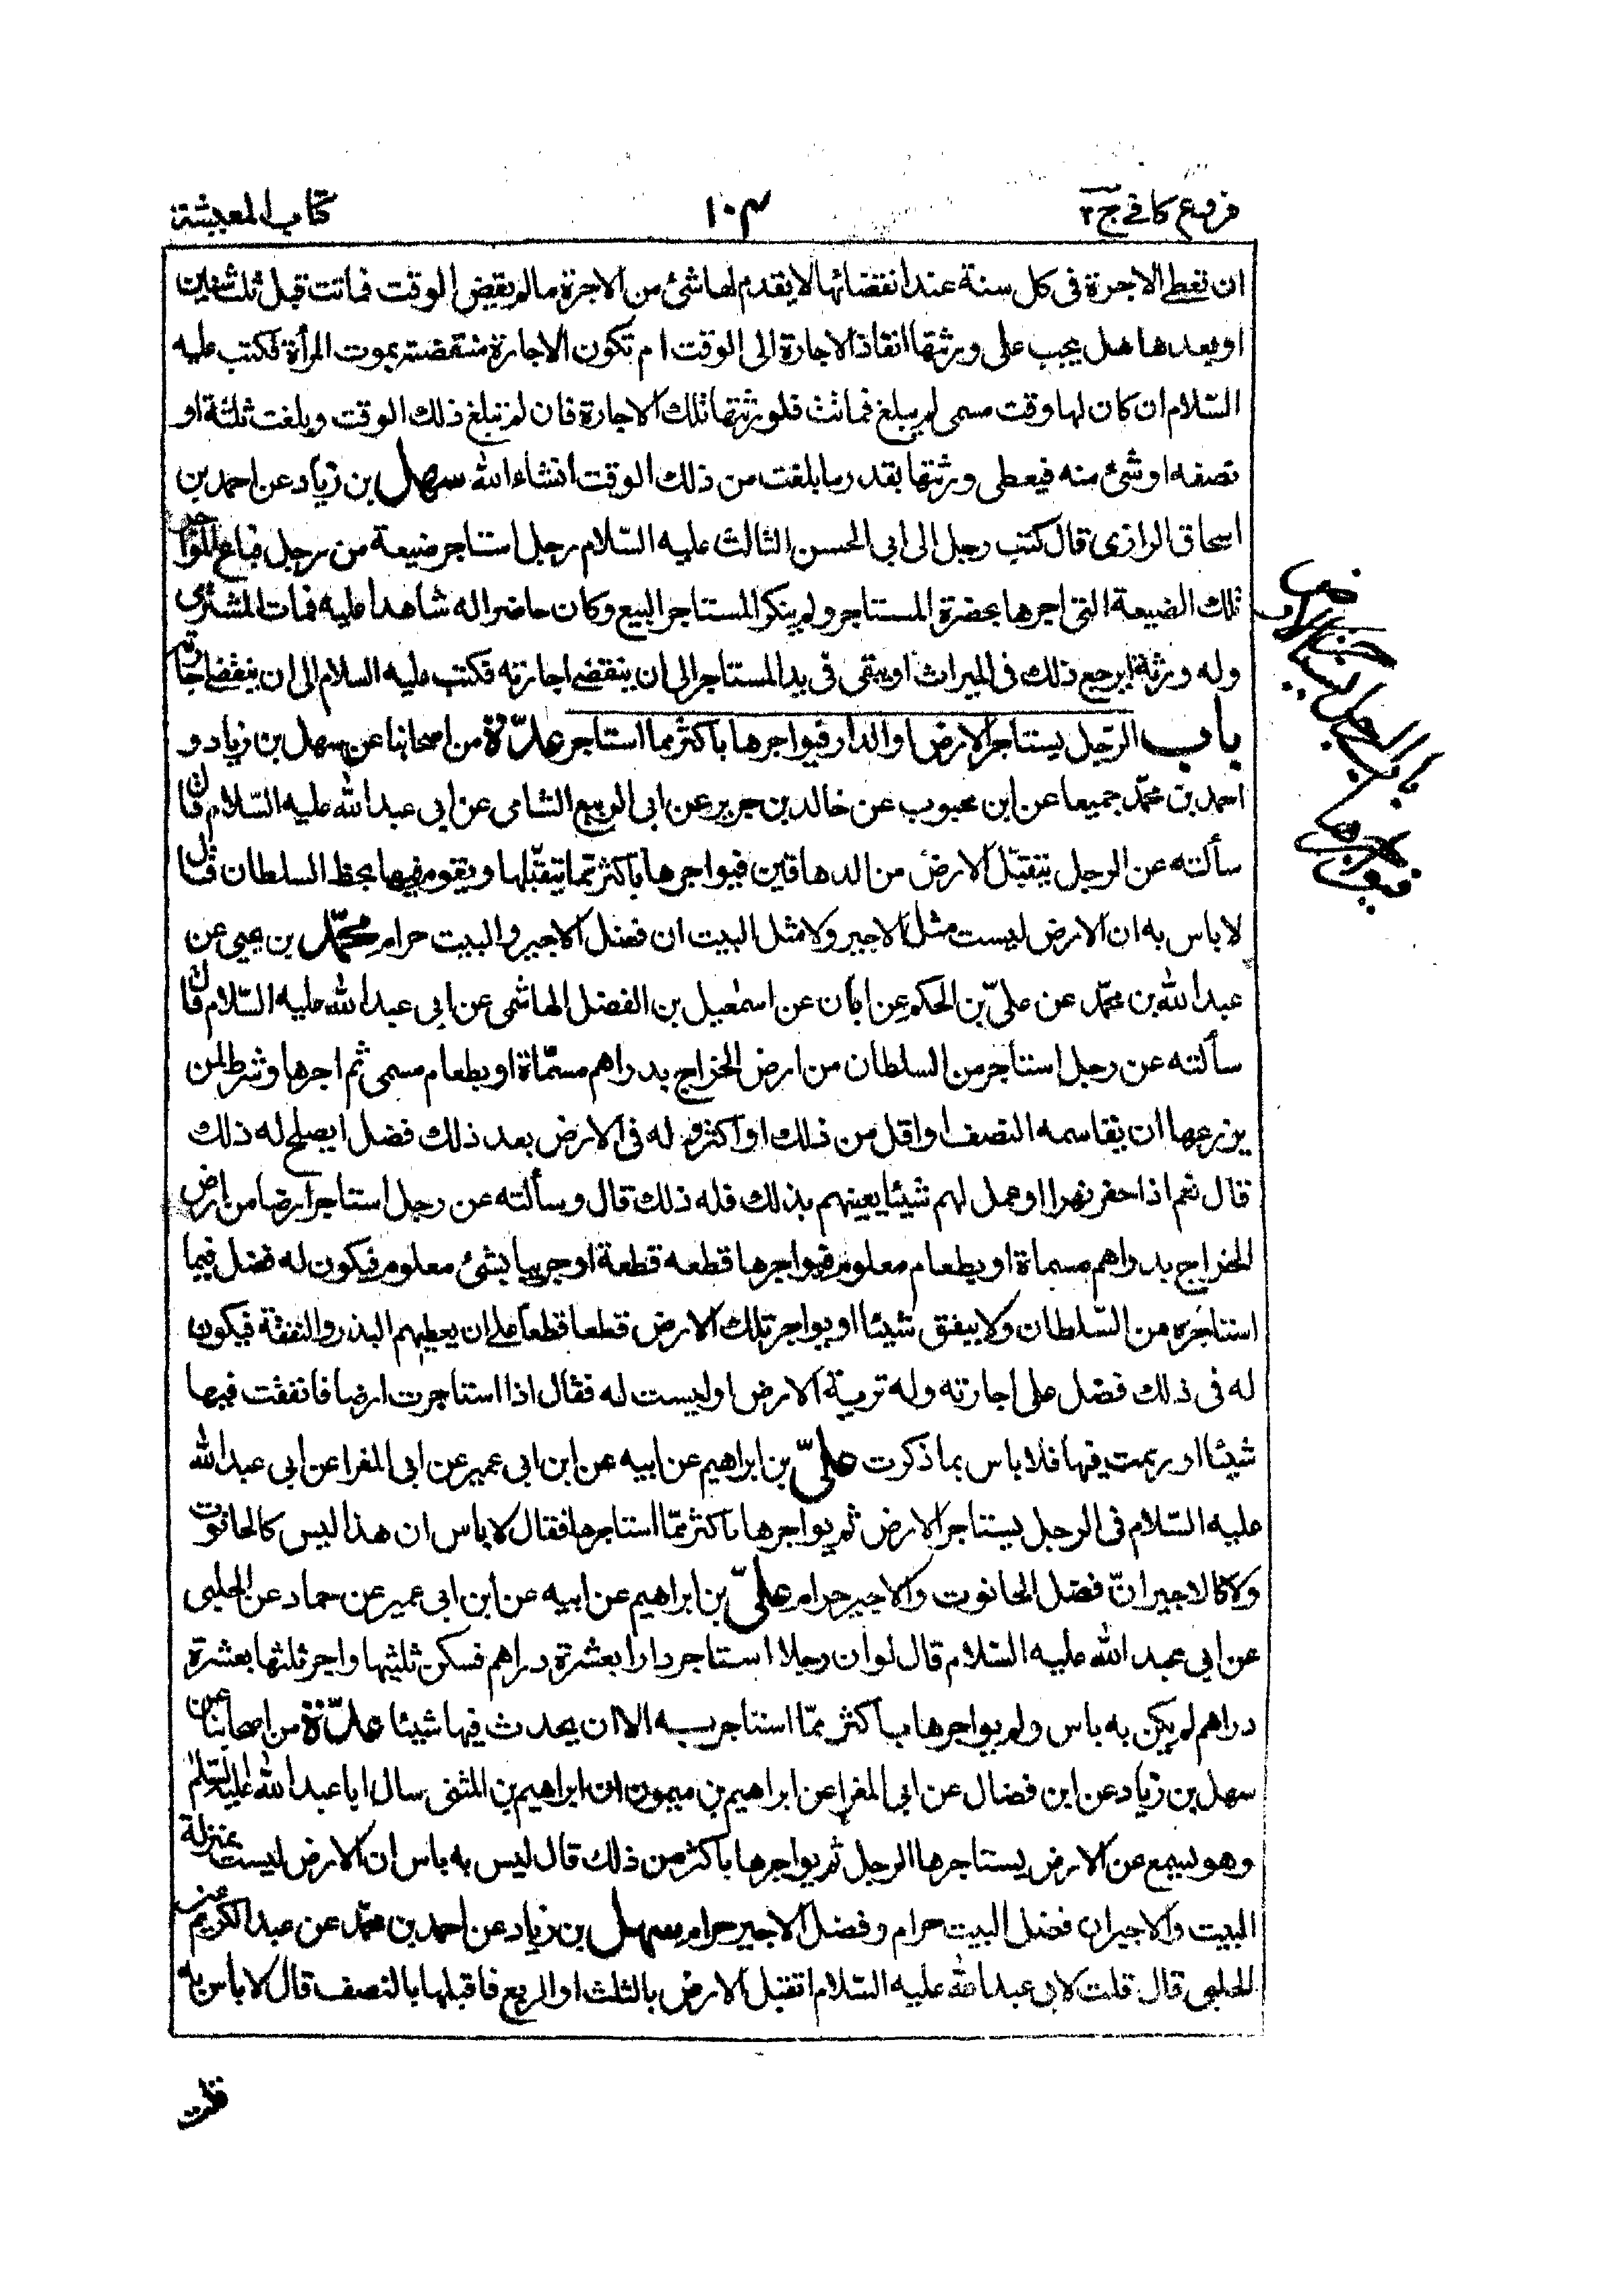 فروع كافي ج٢
١٠٣
كتاب المعيشة
ان تعطى الاجرة فى كل سنة عند انقضائها لا يقدم لها شئ من الاجرة ما لم يقض الوقت فماتت قبل ثلث سنين
او بعدها هل يجب على ورثتها انفاذ الاجارة الى الوقت ام تكون الاجارة منتقضة بموت المرأة فكتب عليه
السّلام ان كان لها وقت مسمى لم يبلغ فماتت فلورثتها تلك الاجارة فان لم تبلغ ذلك الوقت وبلغت ثلثة او
نصفه او شئ منه فيعطى ورثتها بقدر ما بلغت من ذلك الوقت انشاء الله سهل بن زياد عن احمد بن
اسحاق الرازى قال كتب رجل الى ابى الحسن الثالث عليه السّلام رجل استاجر ضيعة من رجل فباع المؤاجر
تلك الضيعة التى اجرها بحضرة المستاجر ولم ينكر المستاجر البيع وكان حاضرا له شاهدا عليه فمات المشترى
وله ورثة ايرجع ذلك فى الميراث او يبقى فى يد المستاجر الى ان ينقضى اجارته فكتب عليه السلام الى ان ينقضى اجارته
باب الرّجل يستاجر الارض او الدار فيواجرها باكثر مما استاجر عدّة من اصحابنا عن سهل بن زياد و
احمد بن محمّد جميعا عن ابن محبوب عن خالد بن جرير عن ابى الربيع الشامى عن ابى عبد الله عليه السّلام قال
سألته عن الرجل يتقبّل الارض من الدهاقين فيواجرها باكثر مّما يتقبّلها ويقوم فيها بحظ السلطان قال
لا باس به ان الارض ليست مثل الاجير ولا مثل البيت ان فضل الاجير والبيت حرام محمّد بن يحيى عن
عبد الله بن محمّد عن علىّ بن الحكم عن ابان عن اسمعيل بن الفضل الهاشمى عن ابى عبد الله عليه السّلام قال
سألته عن رجل استاجر من السلطان من ارض الخراج بدراهم مسمّاة او بطعام مسمى ثم اجرها وشرط لمن
يزرعها ان يقاسمه النصف او اقل من ذلك او اكثر وله فى الارض بعد ذلك فضل ايصلح له ذلك
قال نعم اذا حفر نهرا او عمل لهم شيئا يعينهم بذلك فله ذلك قال وسألته عن رجل استاجر ارضا من ارض
الخراج بدراهم مسماة او بطعام معلوم فيواجرها قطعه قطعة او جريبا بشئ معلوم فيكون له فضل فيما
استاجره من السّلطان ولا ينفق شيئا او يواجر تلك الارض قطعا قطعا على ان يعطيهم البذر والنفقة فيكون
له فى ذلك فضل على اجارته وله تربة الارض او ليست له فقال اذا استاجرت ارضا فانفقت فيها
شيئا او رممت فيها فلا باس بما ذكرت علىّ بن ابراهيم عن ابيه عن ابن ابى عمير عن ابى المغرا عن ابى عبد الله
عليه السّلام فى الرجل يستاجر الارض ثم يواجرها باكثر ممّا استاجرها فقال لا باس ان هذا ليس كالحانوت
ولا كالاجير انّ فضل الحانوت والاجير حرام علىّ بن ابراهيم عن ابيه عن ابن ابى عمير عن حماد عن الحلبى
عن ابى عبد الله عليه السّلام قال لو ان رجلا استاجر دارا بعشرة دراهم فسكن ثلثيها واجر ثلثها بعشرة
دراهم لم يكن به باس ولم يواجرها باكثر ممّا استاجر به الا ان يحدث فيها شيئا عدّة من اصحابنا عن
سهل بن زياد عن ابن فضال عن ابى المغرا عن ابراهيم بن ميمون ان ابراهيم بن المثنى سال ابا عبد الله عليه السّلم
وهو يسمع عن الارض يستاجرها الرجل ثم يواجرها باكثر من ذلك قال ليس به باس ان الارض ليست بمنزلة
البيت والاجير ان فضل البيت حرام وفضل الاجير حرام سهل بن زياد عن احمد بن محمّد عن عبد الكريم عن
الحلبى قال قلت لابى عبد الله عليه السّلام اتقبل الارض بالثلث او الربع فاقبلها بالنصف قال لا باس به
قلت